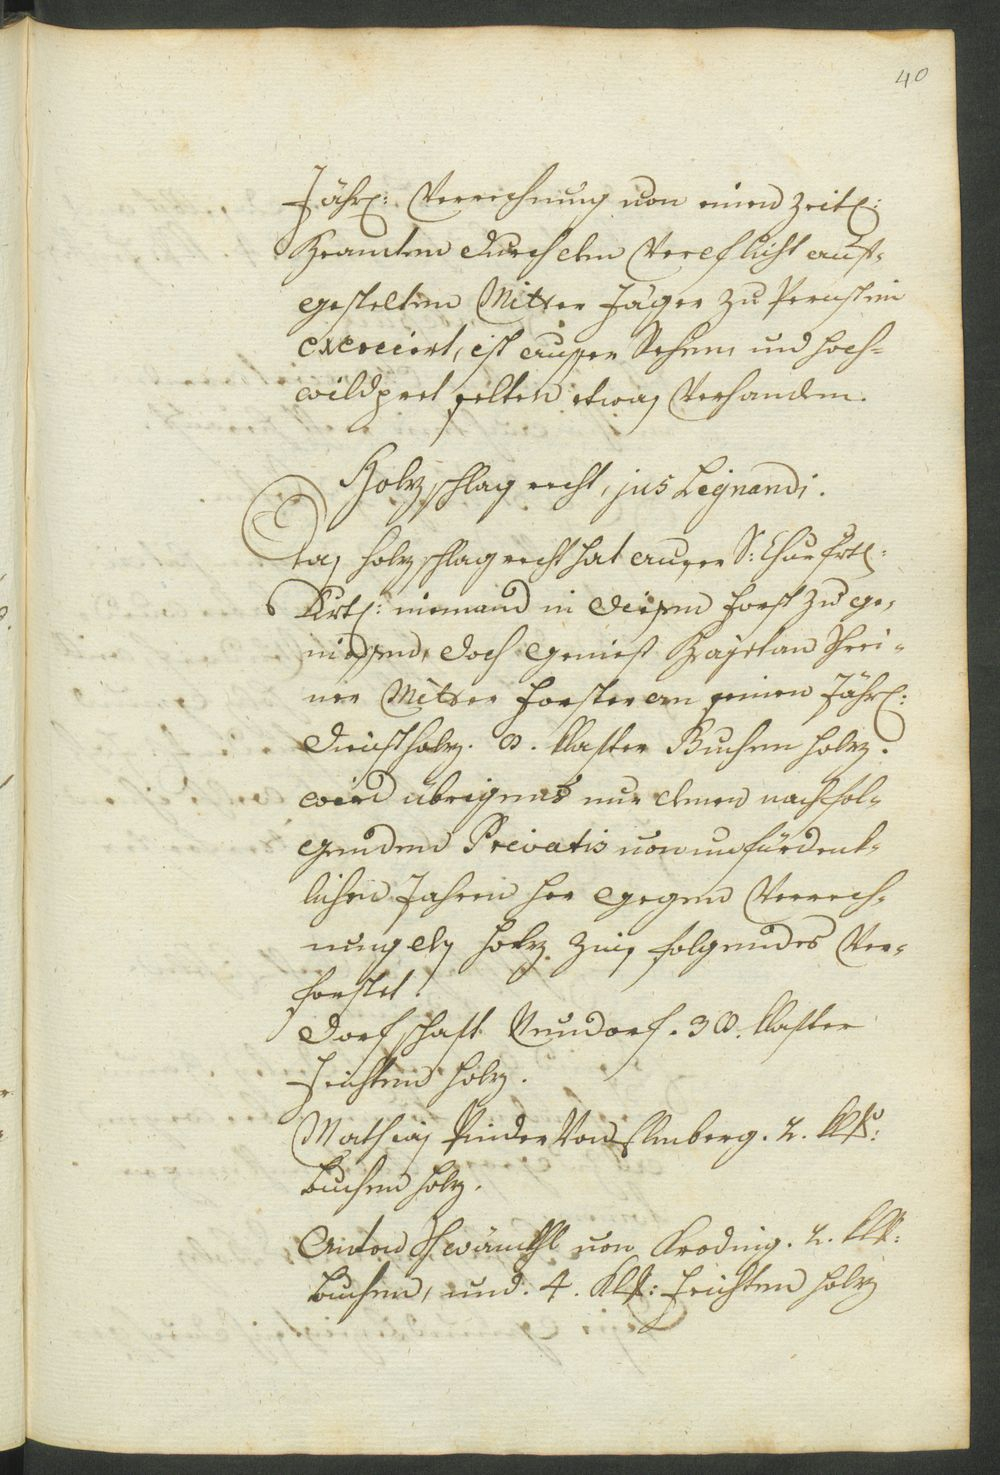 40
Jährl: Verrechnung von einen zeitl:
Beamten durch den Verpflicht auf-
gestelten Mitter Jäger zu Pernstein
exerciert, ist ausser Rehen, und hoch-
wildpret selten etwas Verhanden.
Holzschlag recht, jus Lignandi.
Das holzschlag recht hat ausser Sr: Churfrtl:
Drtl: niemand in diesen forst zu ge-
niessen, doch geniest Cajetan
ner Mitter forster an seinen Jährl:
Dienstholz. 8. Klafter Buchen holz.
wird übrigens nur denen nachfol-
genden Privatis von unfürdenk-
lichen Jahren her gegen Verrech-
nung des holz Zins folgendes Ver-
forstet!
Dorfschaft Neudorf. 38. Klafter
feichten holz.
Mathias Pinder Von Ellnberg. 2. Klft:
buchen holz.
Anton von Kroding. 2. Klft:
buchen, und. 4. Klft: feichten holz